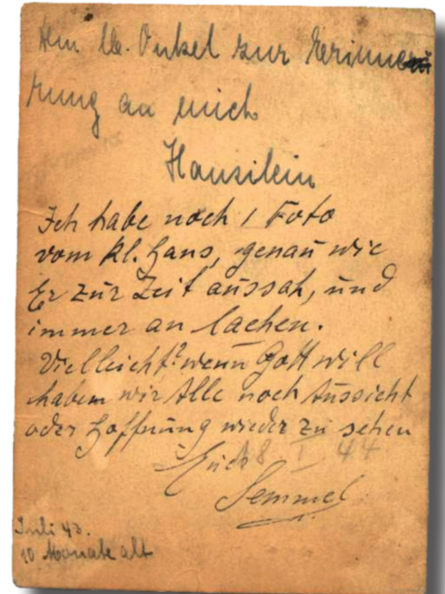 Dem lb. Onkel zur Erinne
rung an mich
Hansilein
Ich habe noch 1 Foto
vom kl. Hans, genau wie
Er zur Zeit aussah, und
immer an lachen.
Vielleicht? wenn Gott will
haben wir Alle noch Aussicht
oder Hoffnung wieder zu sehen
Euch 8. I. 44
Semmel
Juli 43.
10 Monate alt